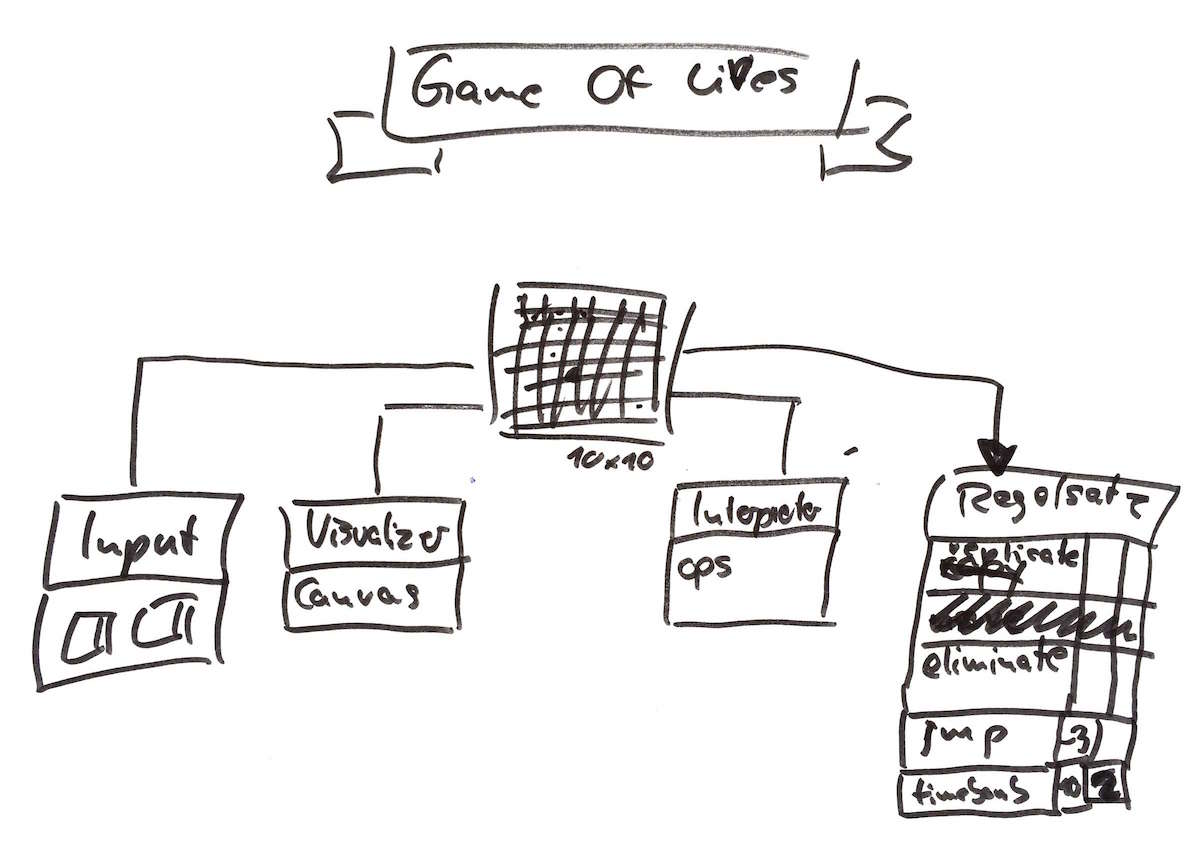 Game Of Lives
10x10
Input
Visualizer
Canvas
Interpreter
ops
Regelsatz
replicate
eliminate
jmp -3
10 2